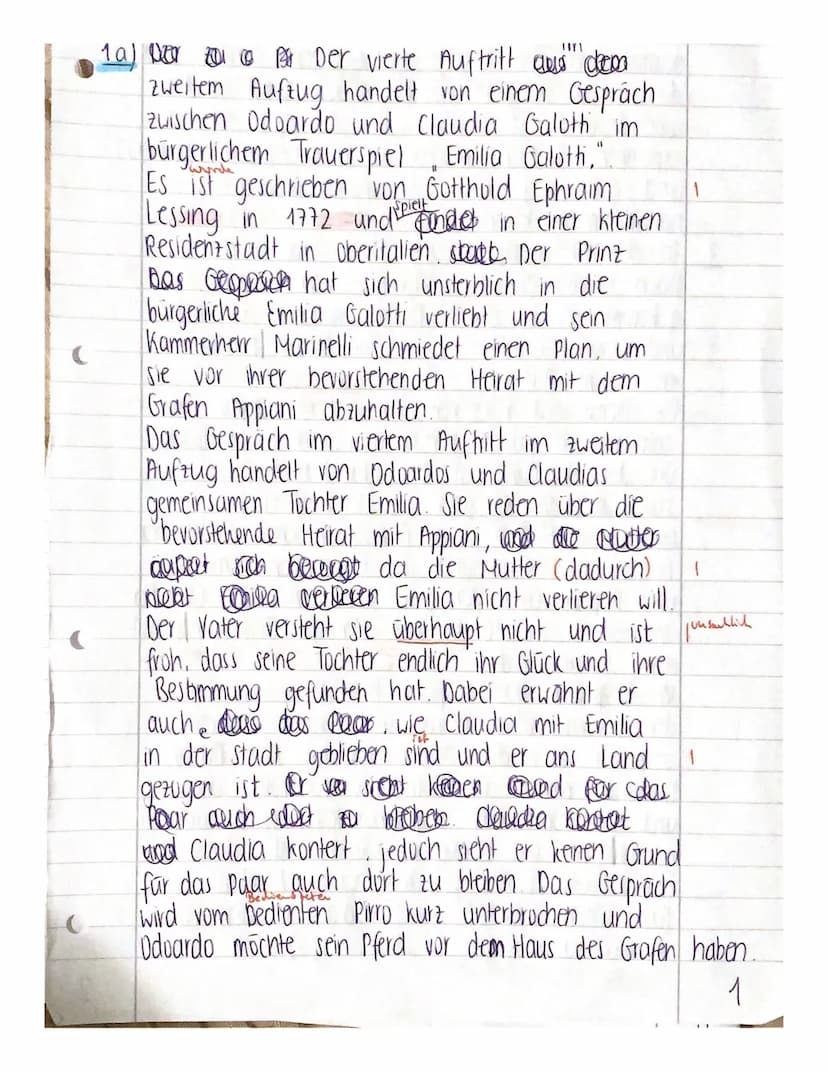 1a) Der vierte Auftritt aus dem
zweitem Aufzug handelt von einem Gespräch
zwischen Odoardo und Claudia Galotti im
bürgerlichem Trauerspiel „Emilia Galotti,".
wurde
Es ist geschrieben von Gotthold Ephraim 1
Lessing in 1772 und spielt findet in einer kleinen
Residenzstadt in Oberitalien. statt. Der Prinz
Das Gespräch hat sich unsterblich in die
bürgerliche Emilia Galotti verliebt und sein
Kammerherr | Marinelli schmiedet einen Plan, um
sie vor ihrer bevorstehenden Heirat mit dem
Grafen Appiani abzuhalten.
Das Gespräch im viertem Auftritt im zweitem
Aufzug handelt von Odoardos und Claudias
gemeinsamen Tochter Emilia. Sie reden über die
bevorstehende Heirat mit Appiani, und die Mutter
äußert sich besorgt da die Mutter (dadurch) 1
nicht Emilia verlieren Emilia nicht verlieren will.
Der | Vater versteht sie überhaupt nicht und ist
froh, dass seine Tochter endlich ihr Glück und ihre
Bestimmung gefunden hat. Dabei erwähnt er
auch, dass das Paar, wie Claudia mit Emilia
ist
in der Stadt geblieben sind und er ans Land 1
gezogen ist. Er sieht keinen Grund für das
Paar auch dort zu bleiben. Claudia kontert
und Claudia kontert, jedoch sieht er keinen | Grund
für das Paar auch dort zu bleiben. Das Gespräch
Bediensteten
wird vom Bedienten Pirro kurz unterbrochen und
Odoardo möchte sein Pferd vor dem Haus des Grafen haben.
1